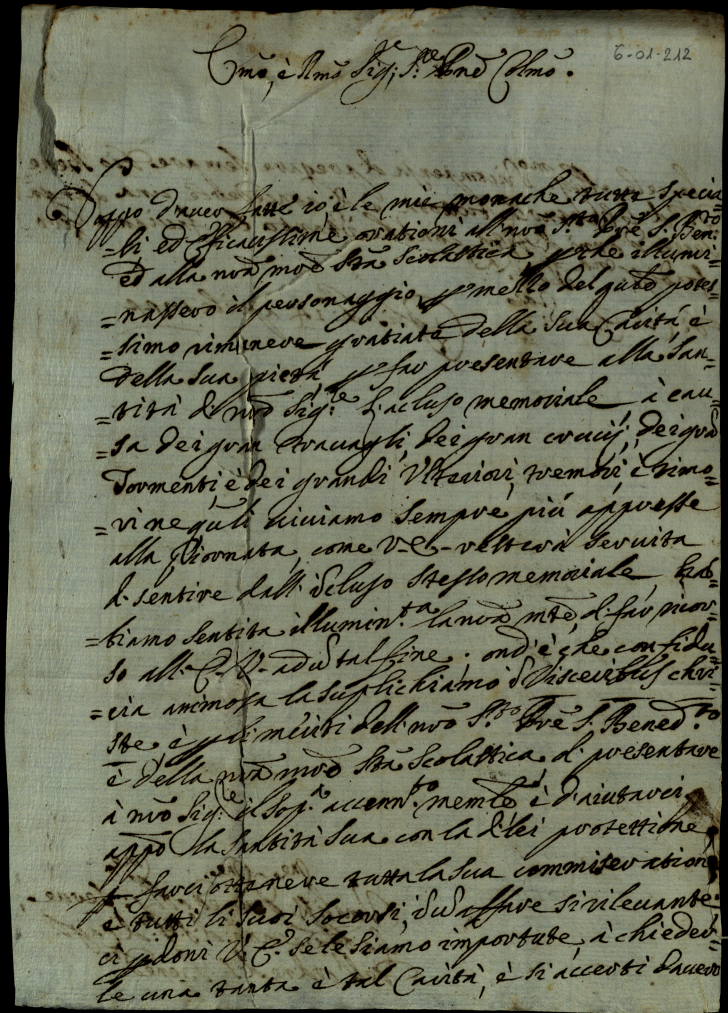 6-01-212
Emo, è Rmo Sig.re, S.re Pne Colmo.
Doppo d'aver fatte io, è le mie monache tutte specia=
=li ed efficacissime orationi all nro S.to Pre S. Ben.to
ed alla nra mre Sta Scolastica, pche illumi=
=nassero il personaggio p mezzo del qule potes=
=simo rimanere gratiate della sua Carità, è
della sua pietà p far presentare alla San=
=tità di nro Sig.re l'acluso memoriale à cau=
=sa dei gran travagli, dei gran crucij, dei gra
Tormenti, è dei grandi Ulteriori, tremori, è timo=
=ri ne quli viviamo sempre più appresse
alla Giornata, come V-E- resterà servita
di sentire dall'icluso stesso memoriale hab=
=biamo sentita illumin.ta la nra mte, di far ricor=
so all'E-V- ad u tal fine. ond'è che confidu=
=cia animosa la suplichiamo i Visceribus Chri=
ste è p li meriti dell nro S.to Pre S. Bened.to
è della nra mre Sta Scolastica di presentare
à nro Sig.re il sop.a accenn.to memle è d'aiutarci
appo la Santità Sua con la di lei protettione
p farci ottenere tutta la sua commiseratione
è tutti li suoi socorsi, i u affare si rilevante.
ci pdoni V.E. se le siamo importute, à chieder=
le una tanta è tal Carità, è si accerti d'avere